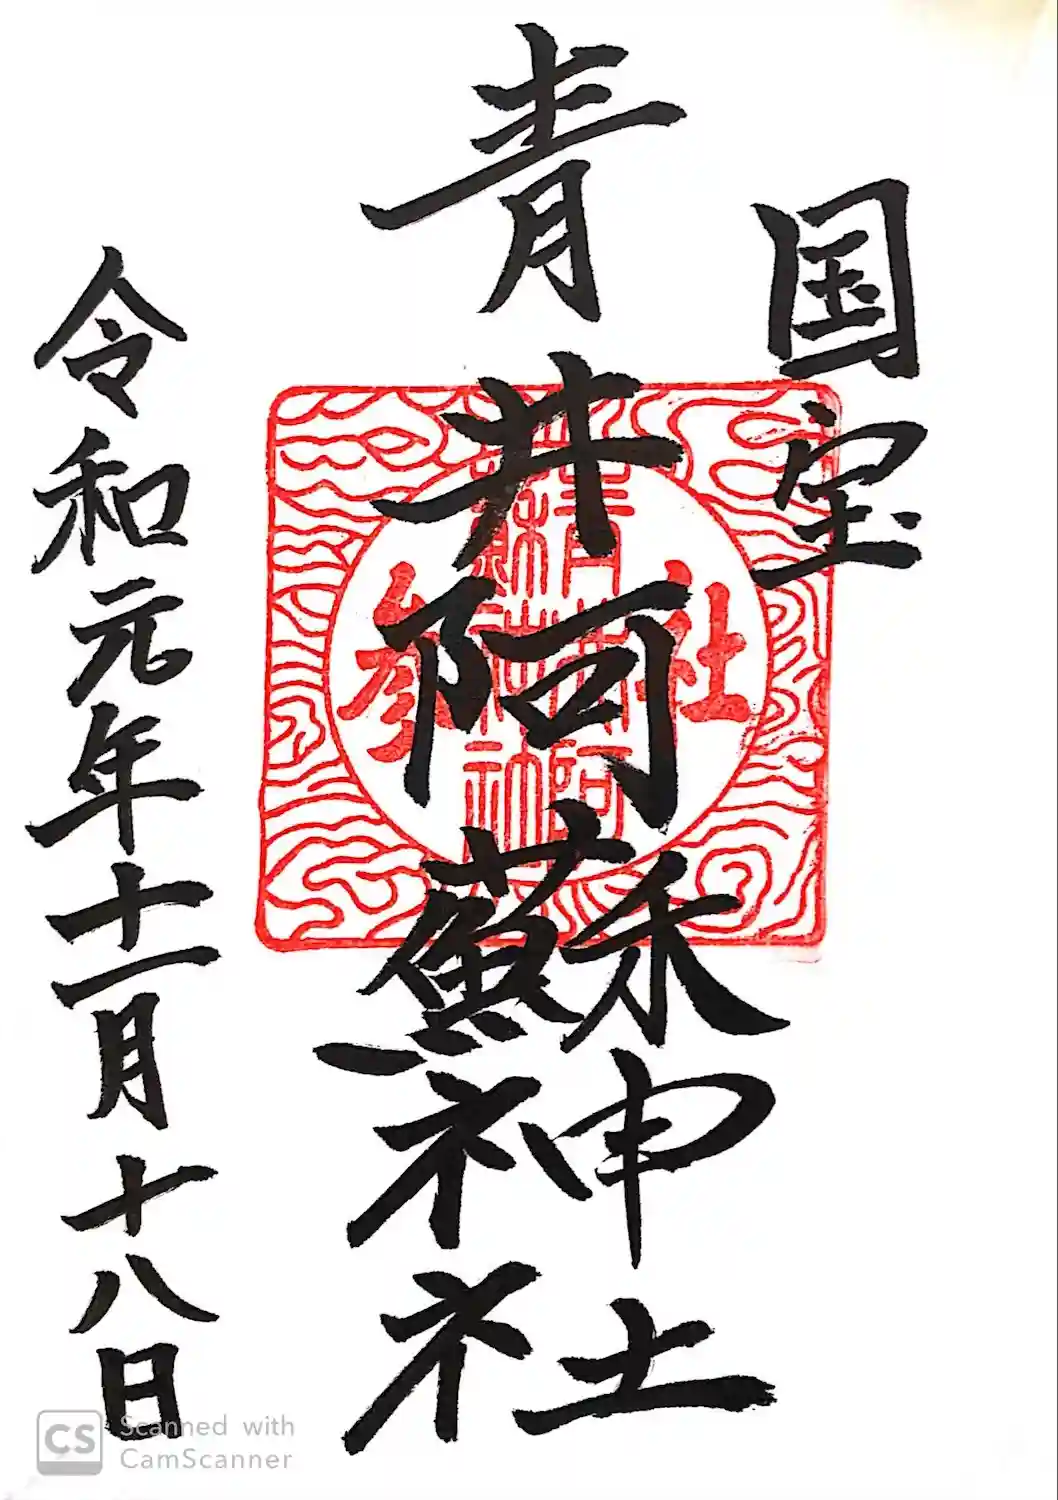 国宝
青井阿蘇神社
令和元年十一月十八日
社参
青井阿
蘇神社
CS Scanned with
CamScanner